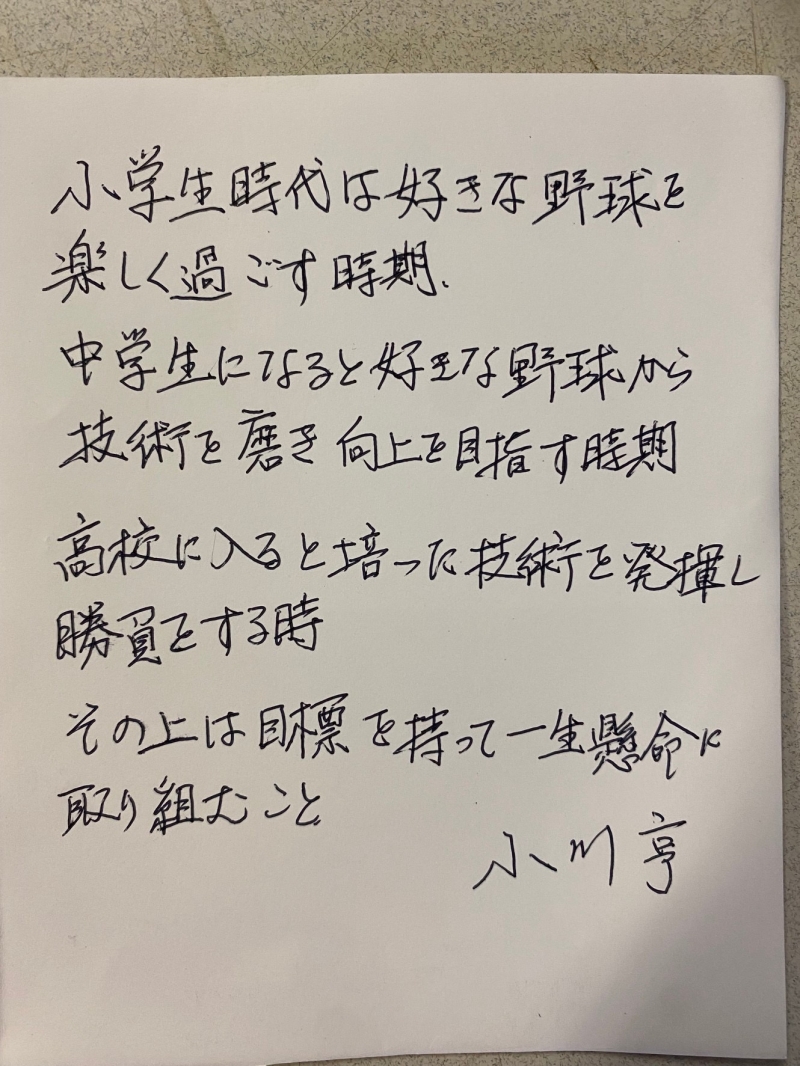 小学生時代は好きな野球を
楽しく過ごす時期、
中学生になると好きな野球から
技術を磨き向上を目指す時期
高校に入ると培った技術を発揮し
勝負をする時
その上は目標を持って一生懸命に
取り組むこと
小川亨